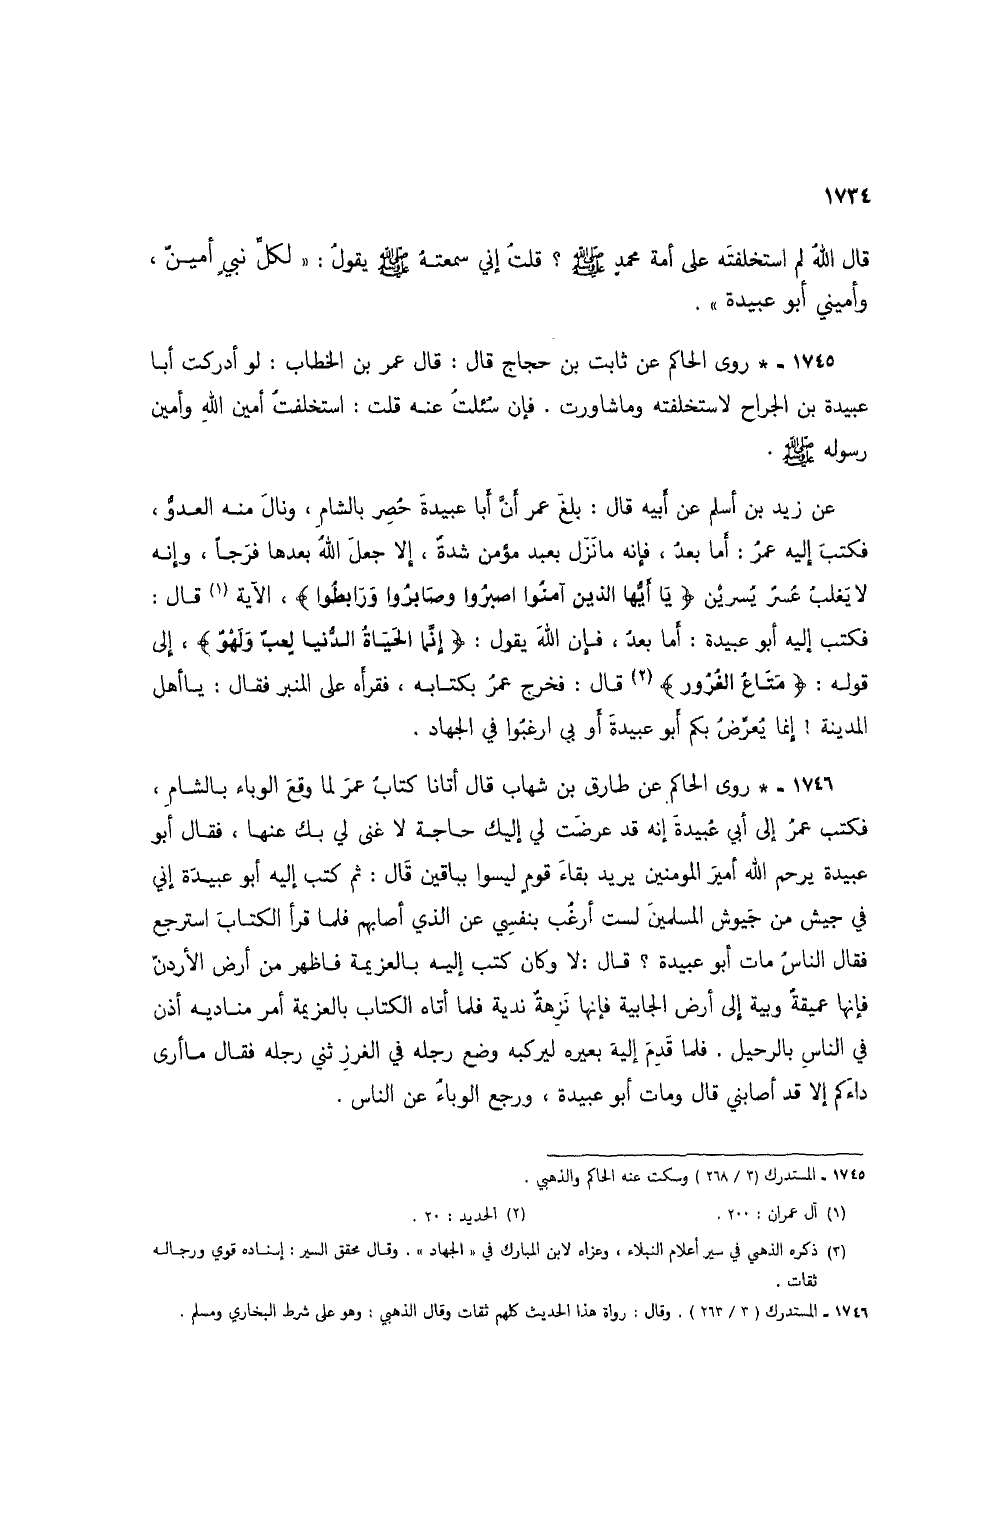 ١٧٣٤
قال اللهُ لم استخلفتَه على أمة محمدٍ ﷺ ؟ قلتُ إني سمعتـهُ ﷺ يقولُ : « لكلِّ نبيٍ أميـنٌ ،
وأميني أبو عبيدة » .
١٧٤٥ ـ * روى الحاكم عن ثابت بن حجاج قال : قال عمر بن الخطاب : لو أدركت أبـا
عبيدة بن الجراح لاستخلفته وماشاورت . فإن سُئلتُ عنـه قلت : استخلفتُ أمين اللهِ وأمين
رسوله ﷺ .
عن زيد بن أسلم عن أبيه قال : بلغَ عمر أنَّ أبا عبيدةَ حُصِر بالشام ، ونالَ منـه العـدوُّ ،
فكتبَ إليه عمرُ : أما بعدُ ، فإنه مانَزَل بعبد مؤمن شدةٌ ، إلا جعلَ اللهُ بعدها فرَجـاً ، وإنـه
لا يَغلبُ عُسرٌ يُسريْن ﴿ يَا أَيُّها الذين آمنُوا اصبرُوا وصَابرُوا وَرَابطُوا ﴾ ، الآية (١) قـال :
فكتب إليه أبو عبيدة : أما بعدُ ، فـإن اللهَ يقول : ﴿ إنَّما الحَيَاةُ الـدُّنيـا لِعبٌ وَلَهْوٌ ﴾ ، إلى
قولـه : ﴿ مَتَـاعُ الغُرُور ﴾ (٢) قـال : فخرج عمرُ بكتـابـه ، فقرأه على المنبر فقـال : يـاأهل
المدينة ! إنما يُعرِّضُ بكم أبو عبيدةَ أو بي ارغبُوا في الجهاد .
١٧٤٦ ـ * روى الحاكم عن طارق بن شهاب قال أتانا كتابُ عمرَ لما وقعَ الوباء بـالشـام ،
فكتب عمرُ إلى أبي عُبيدةَ إنه قد عرضَت لي إليك حـاجـة لا غنى لي بـك عنهـا ، فقـال أبو
عبيدة يرحم الله أميرَ المومنين يريد بقاءَ قومٍ ليسوا بباقين قَال : ثم كتب إليه أبو عبيـدَة إني
في جيش من جَيوش المسلمينَ لست أرغُب بنفسِي عن الذي أصابهم فلمـا قرأ الكتـابَ استرجع
فقال الناسُ مات أبو عبيدة ؟ قـال :لا وكان كتب إليـه بـالعزيمـة فـاظهر من أرض الأردنّ
فإنها عميقةٌ وبية إلى أرض الجابية فإنها نَزِهةٌ ندية فلما أتاه الكتاب بالعزيمة أمر منـاديـه أذن
في الناسِ بالرحيل . فلما قَدِمَ إلية بعيره ليركبه وضع رجله في الغرزِ ثني رجله فقـال مـاأرى
داءَكم إلا قد أصابني قال ومات أبو عبيدة ، ورجع الوباءُ عن الناس .
١٧٤٥ ـ المستدرك (٣ / ٢٦٨ ) وسكت عنه الحاكم والذهبي .
(١) آل عمران : ٢٠٠ . (٢) الحديد : ٢٠ .
(٣) ذكره الذهبي في سير أعلام النبلاء ، وعزاه لابن المبارك في « الجهاد » . وقـال محقق السير : إسنـاده قوي ورجـالـه
ثقات .
١٧٤٦ ـ المستدرك ( ٣ / ٢٦٣ ) . وقال : رواة هذا الحديث كلهم ثقات وقال الذهبي : وهو على شرط البخاري ومسلم .